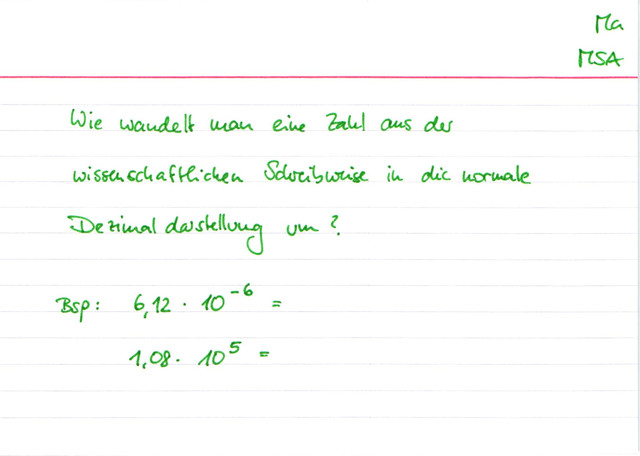 Ma
MSA
Wie wandelt man eine Zahl aus der
wissenschaftlichen Schreibweise in die normale
Dezimaldarstellung um?
Bsp: 6,12 · 10⁻⁶ =
1,08 · 10⁵ =